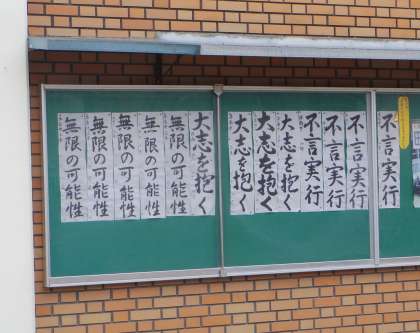 不言実行
不言実行
不言実行
不言実行
大志を抱く
大志を抱く
大志を抱く
大志を抱く
無限の可能性
無限の可能性
無限の可能性
無限の可能性
無限の可能性